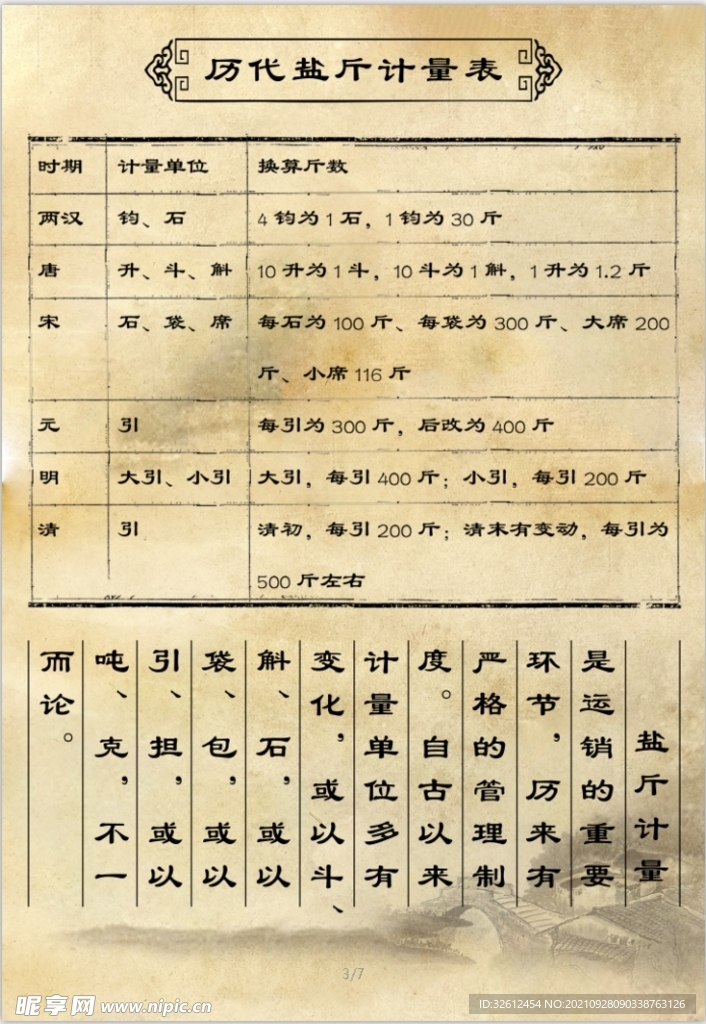 历代盐斤计量表
时期 计量单位 换算斤数
两汉 钧、石 4钧为1石，1钧为30斤
唐 升、斗、斛 10升为1斗，10斗为1斛，1升为1.2斤
宋 石、袋、席 每石为100斤、每袋为300斤、大席200
斤、小席116斤
元 引 每引为300斤，后改为400斤
明 大引、小引 大引，每引400斤；小引，每引200斤
清 引 清初，每引200斤；清末有变动，每引为
500斤左右
盐斤计量
是运销的重要
环节，历来有
严格的管理制
度。自古以来
计量单位多有
变化，或以斗、
斛、石，或以
袋、包，或以
引、担，或以
吨、克，不一
而论。
3/7
昵享网 www.nipic.cn
ID:32612454 NO:20210928090338763126